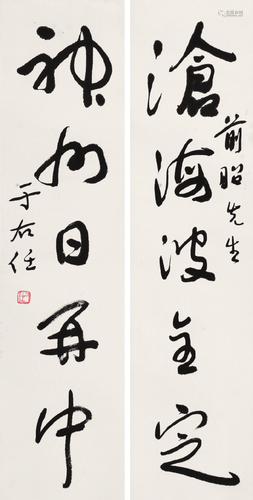 滄海波全定
前昭先生
神州日再中
于右任